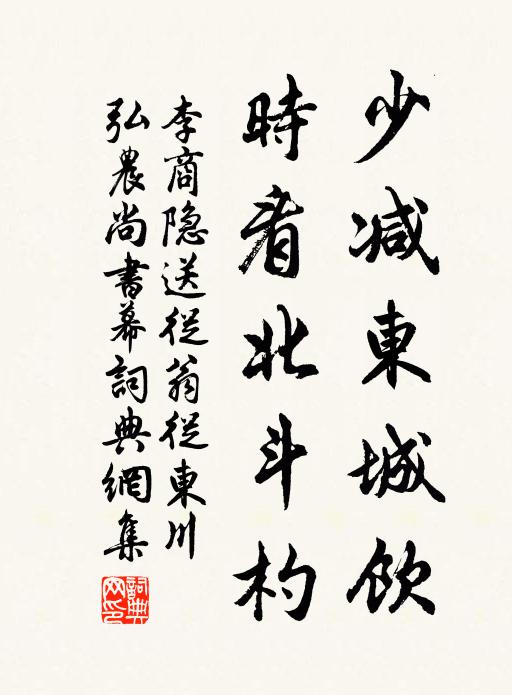 少减東城飲
時看北斗杓
李商隐送從翁從東川
弘農尚書幕詞典網集
詞典
网印